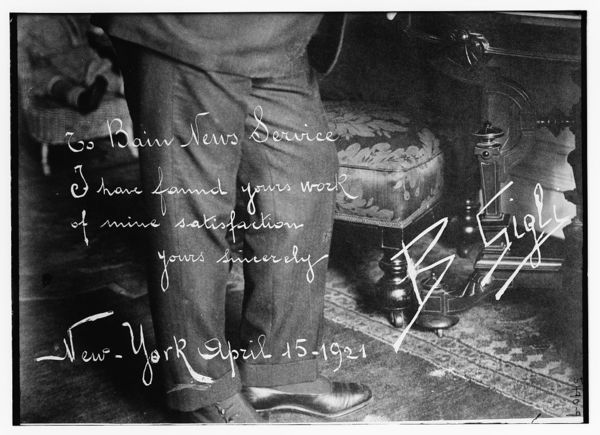 To Bain News Service
I have faund yours work
of mine satisfaction
yours sincerely
B Gigli
New-York April 15-1921